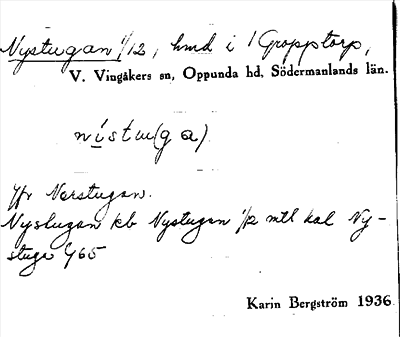 Nystugan 1/12, hmd i 1 Gropptorp,
V. Vingåkers sn, Oppunda hd, Södermanlands län.
nistu(ga)
Jfr Norstugan.
Nystugan kb Nystugan 1/2 mtl kal Ny-
stuga G65
Karin Bergström 1936